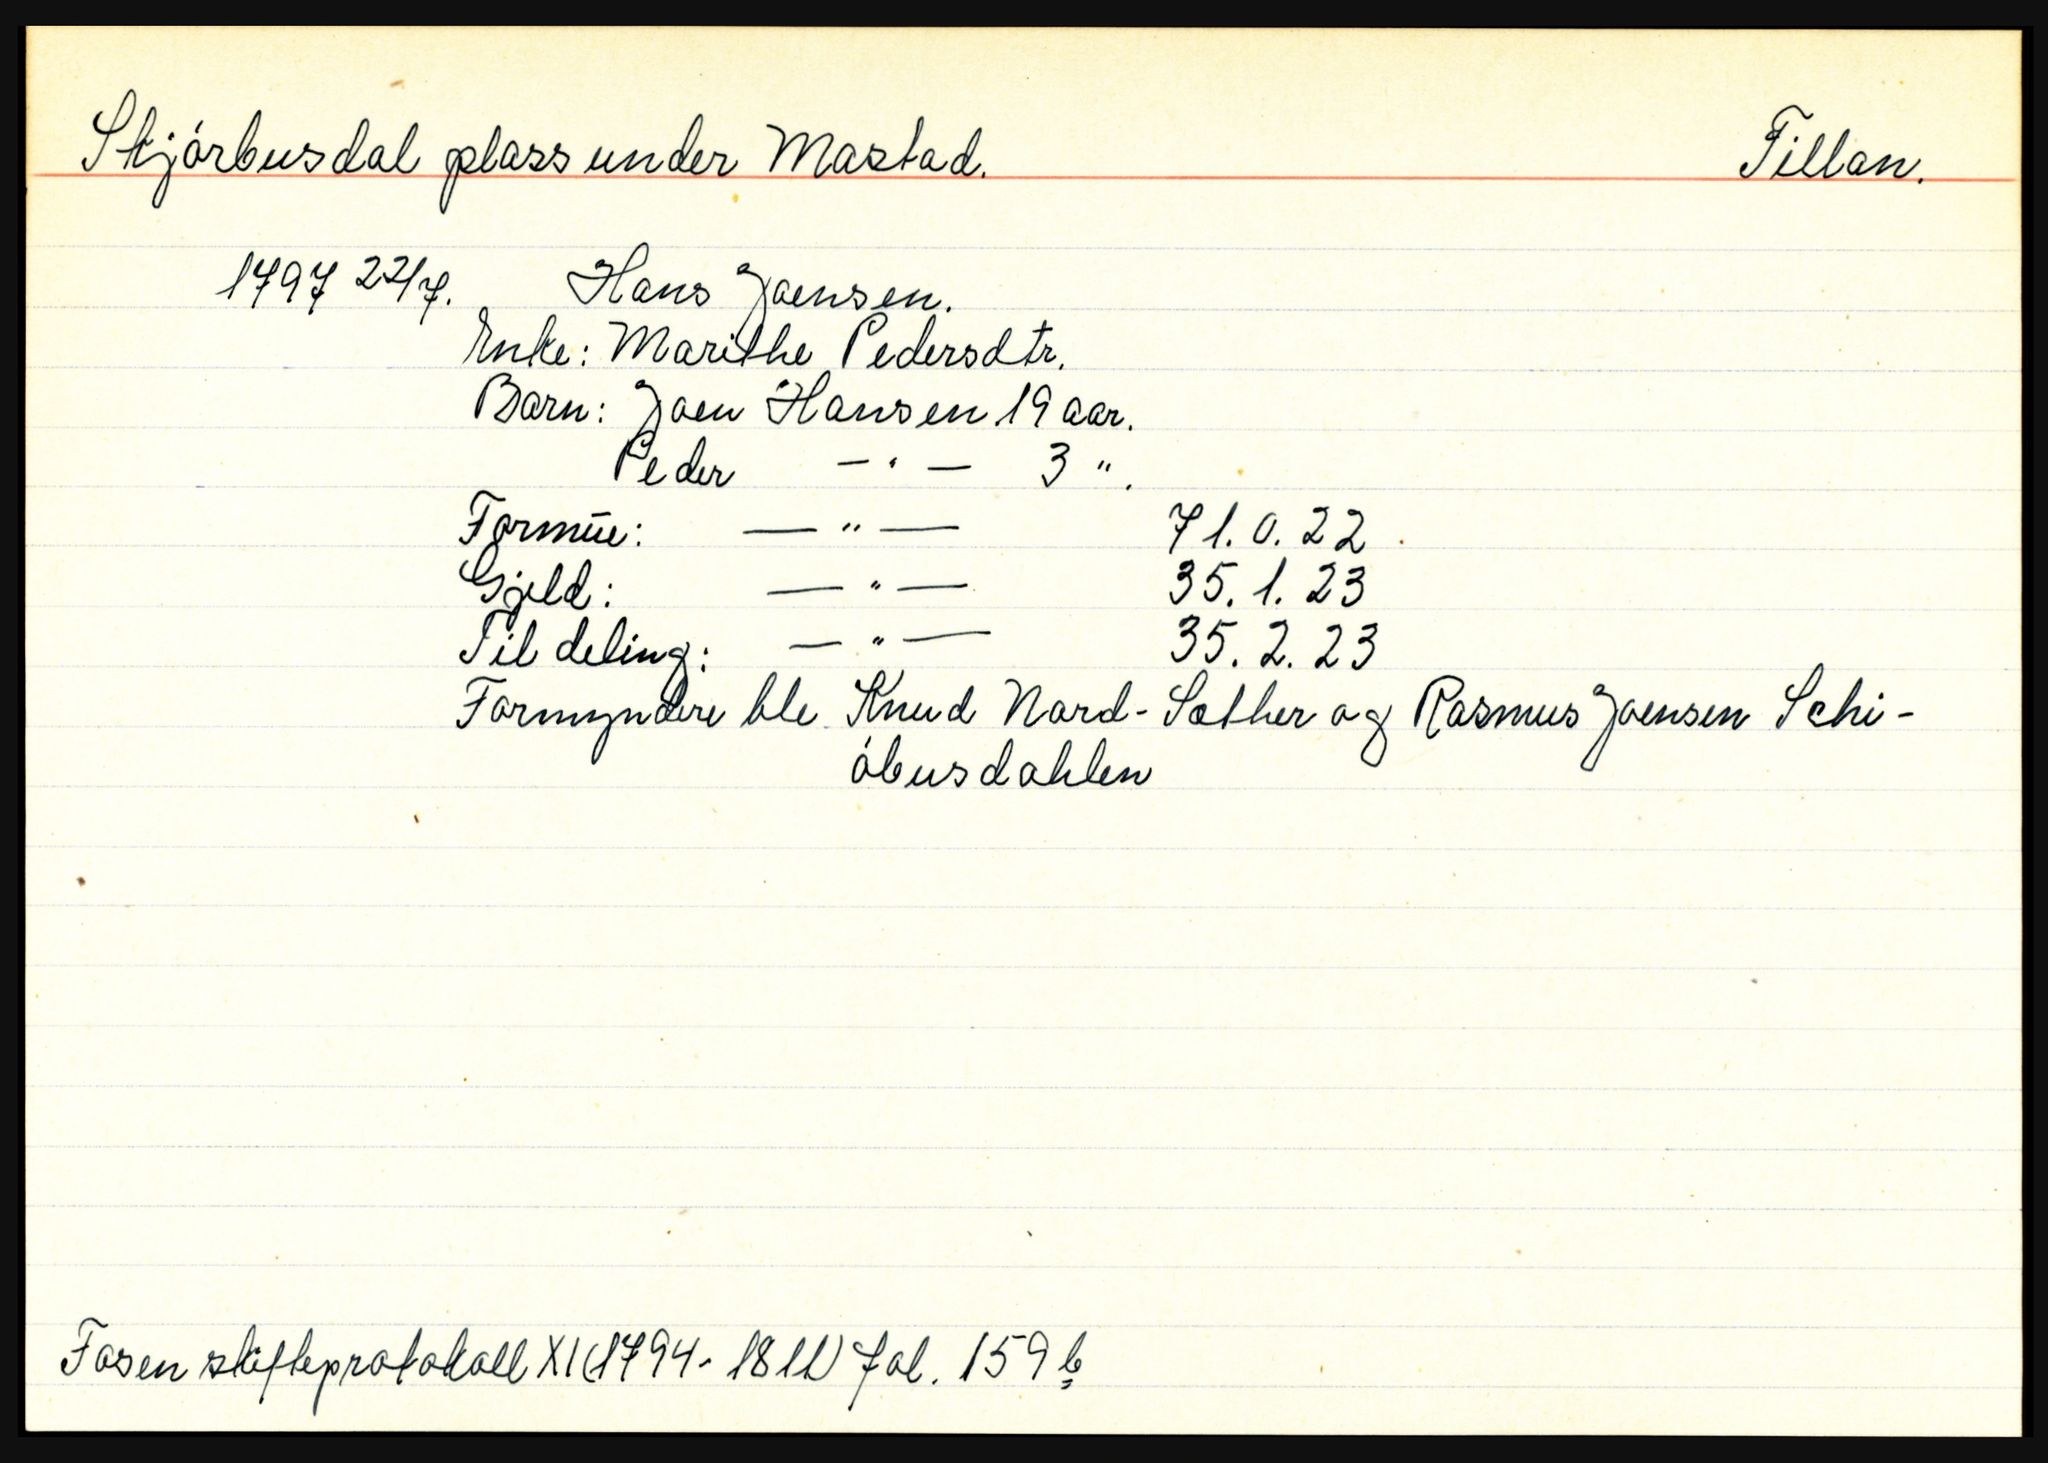 Skjórbusdal plass under Mastad. Fillan.
1797 22/7. Hans Joensen.
Enke: Marithe Pedersdtr.
Barn: Joen Hansen 19 aar.
Peder —"— 3 ".
Formüe: —"— 71. 0. 22
Gjeld: —"— 35. 1. 23
Til deling: —"— 35. 2. 23
Formyndere ble Knud Nord-Sæther og Rasmus Joensen Schi-
óbusdahlen
Fosen skifteprotokoll XI (1794-1811) fol. 159 b